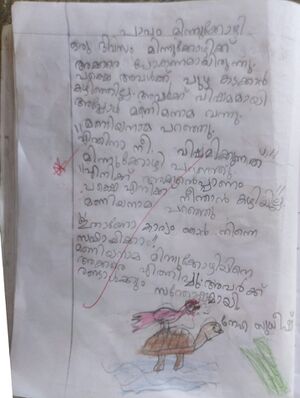 പാവം മിന്നുക്കോഴി
ഒരു ദിവസം മിന്നുക്കോഴിക്ക്
അക്കരെ പോകണമായിരുന്നു
പക്ഷെ അവൾക്ക് പുഴ കടക്കാൻ
കഴിഞ്ഞില്ല. അവൾക്ക് വിഷമമായി
അപ്പോൾ മണിയനാമ വന്നു.
മണിയനാമ പറഞ്ഞു.
"എന്തിനാ നീ വിഷമിക്കുന്നത്"
മിന്നുക്കോഴി പറഞ്ഞു
"എനിക്ക് അക്കരെപ്പോണം
പക്ഷെ എനിക്ക് നീന്താൻ കഴിയില്ല"
മണിയനാമ പറഞ്ഞു
"ഇതാണോ കാര്യം ഞാൻ നിന്നെ
സഹായിക്കാം"
മണിയനാമ മിന്നുക്കോഴിയെ
അക്കരെ എത്തിച്ചു. അവർക്ക്
രണ്ടാൾക്കും സന്തോഷമായി